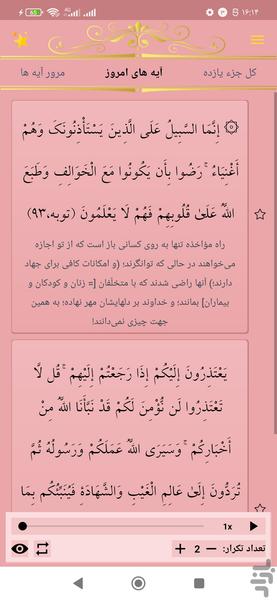 ۱۶:۱۴
65
کل جزء یازده
آیه های امروز
مرور آیه ها
۞ إِنَّمَا السَّبِيلُ عَلَى الَّذِينَ يَسْتَأْذِنُونَكَ وَهُمْ
أَغْنِيَاءُ ۚ رَضُوا بِأَن يَكُونُوا مَعَ الْخَوَالِفِ وَطَبَعَ
اللَّهُ عَلَىٰ قُلُوبِهِمْ فَهُمْ لَا يَعْلَمُونَ (توبه،۹۳)
راه مؤاخذه تنها به روی کسانی باز است که از تو اجازه
می‌خواهند در حالی که توانگرند؛ (و امکانات کافی برای جهاد
دارند؛) آنها راضی شدند که با متخلّفان [= زنان و کودکان و
بیماران] بمانند؛ و خداوند بر دلهایشان مهر نهاده؛ به همین
جهت چیزی نمی‌دانند!
يَعْتَذِرُونَ إِلَيْكُمْ إِذَا رَجَعْتُمْ إِلَيْهِمْ ۚ قُل لَّا
تَعْتَذِرُوا لَن نُّؤْمِنَ لَكُمْ قَدْ نَبَّأَنَا اللَّهُ مِنْ
أَخْبَارِكُمْ ۚ وَسَيَرَى اللَّهُ عَمَلَكُمْ وَرَسُولُهُ ثُمَّ
تُرَدُّونَ إِلَىٰ عَالِمِ الْغَيْبِ وَالشَّهَادَةِ فَيُنَبِّئُكُم بِمَا
1x
تعداد تکرار: - 2 +
بازار